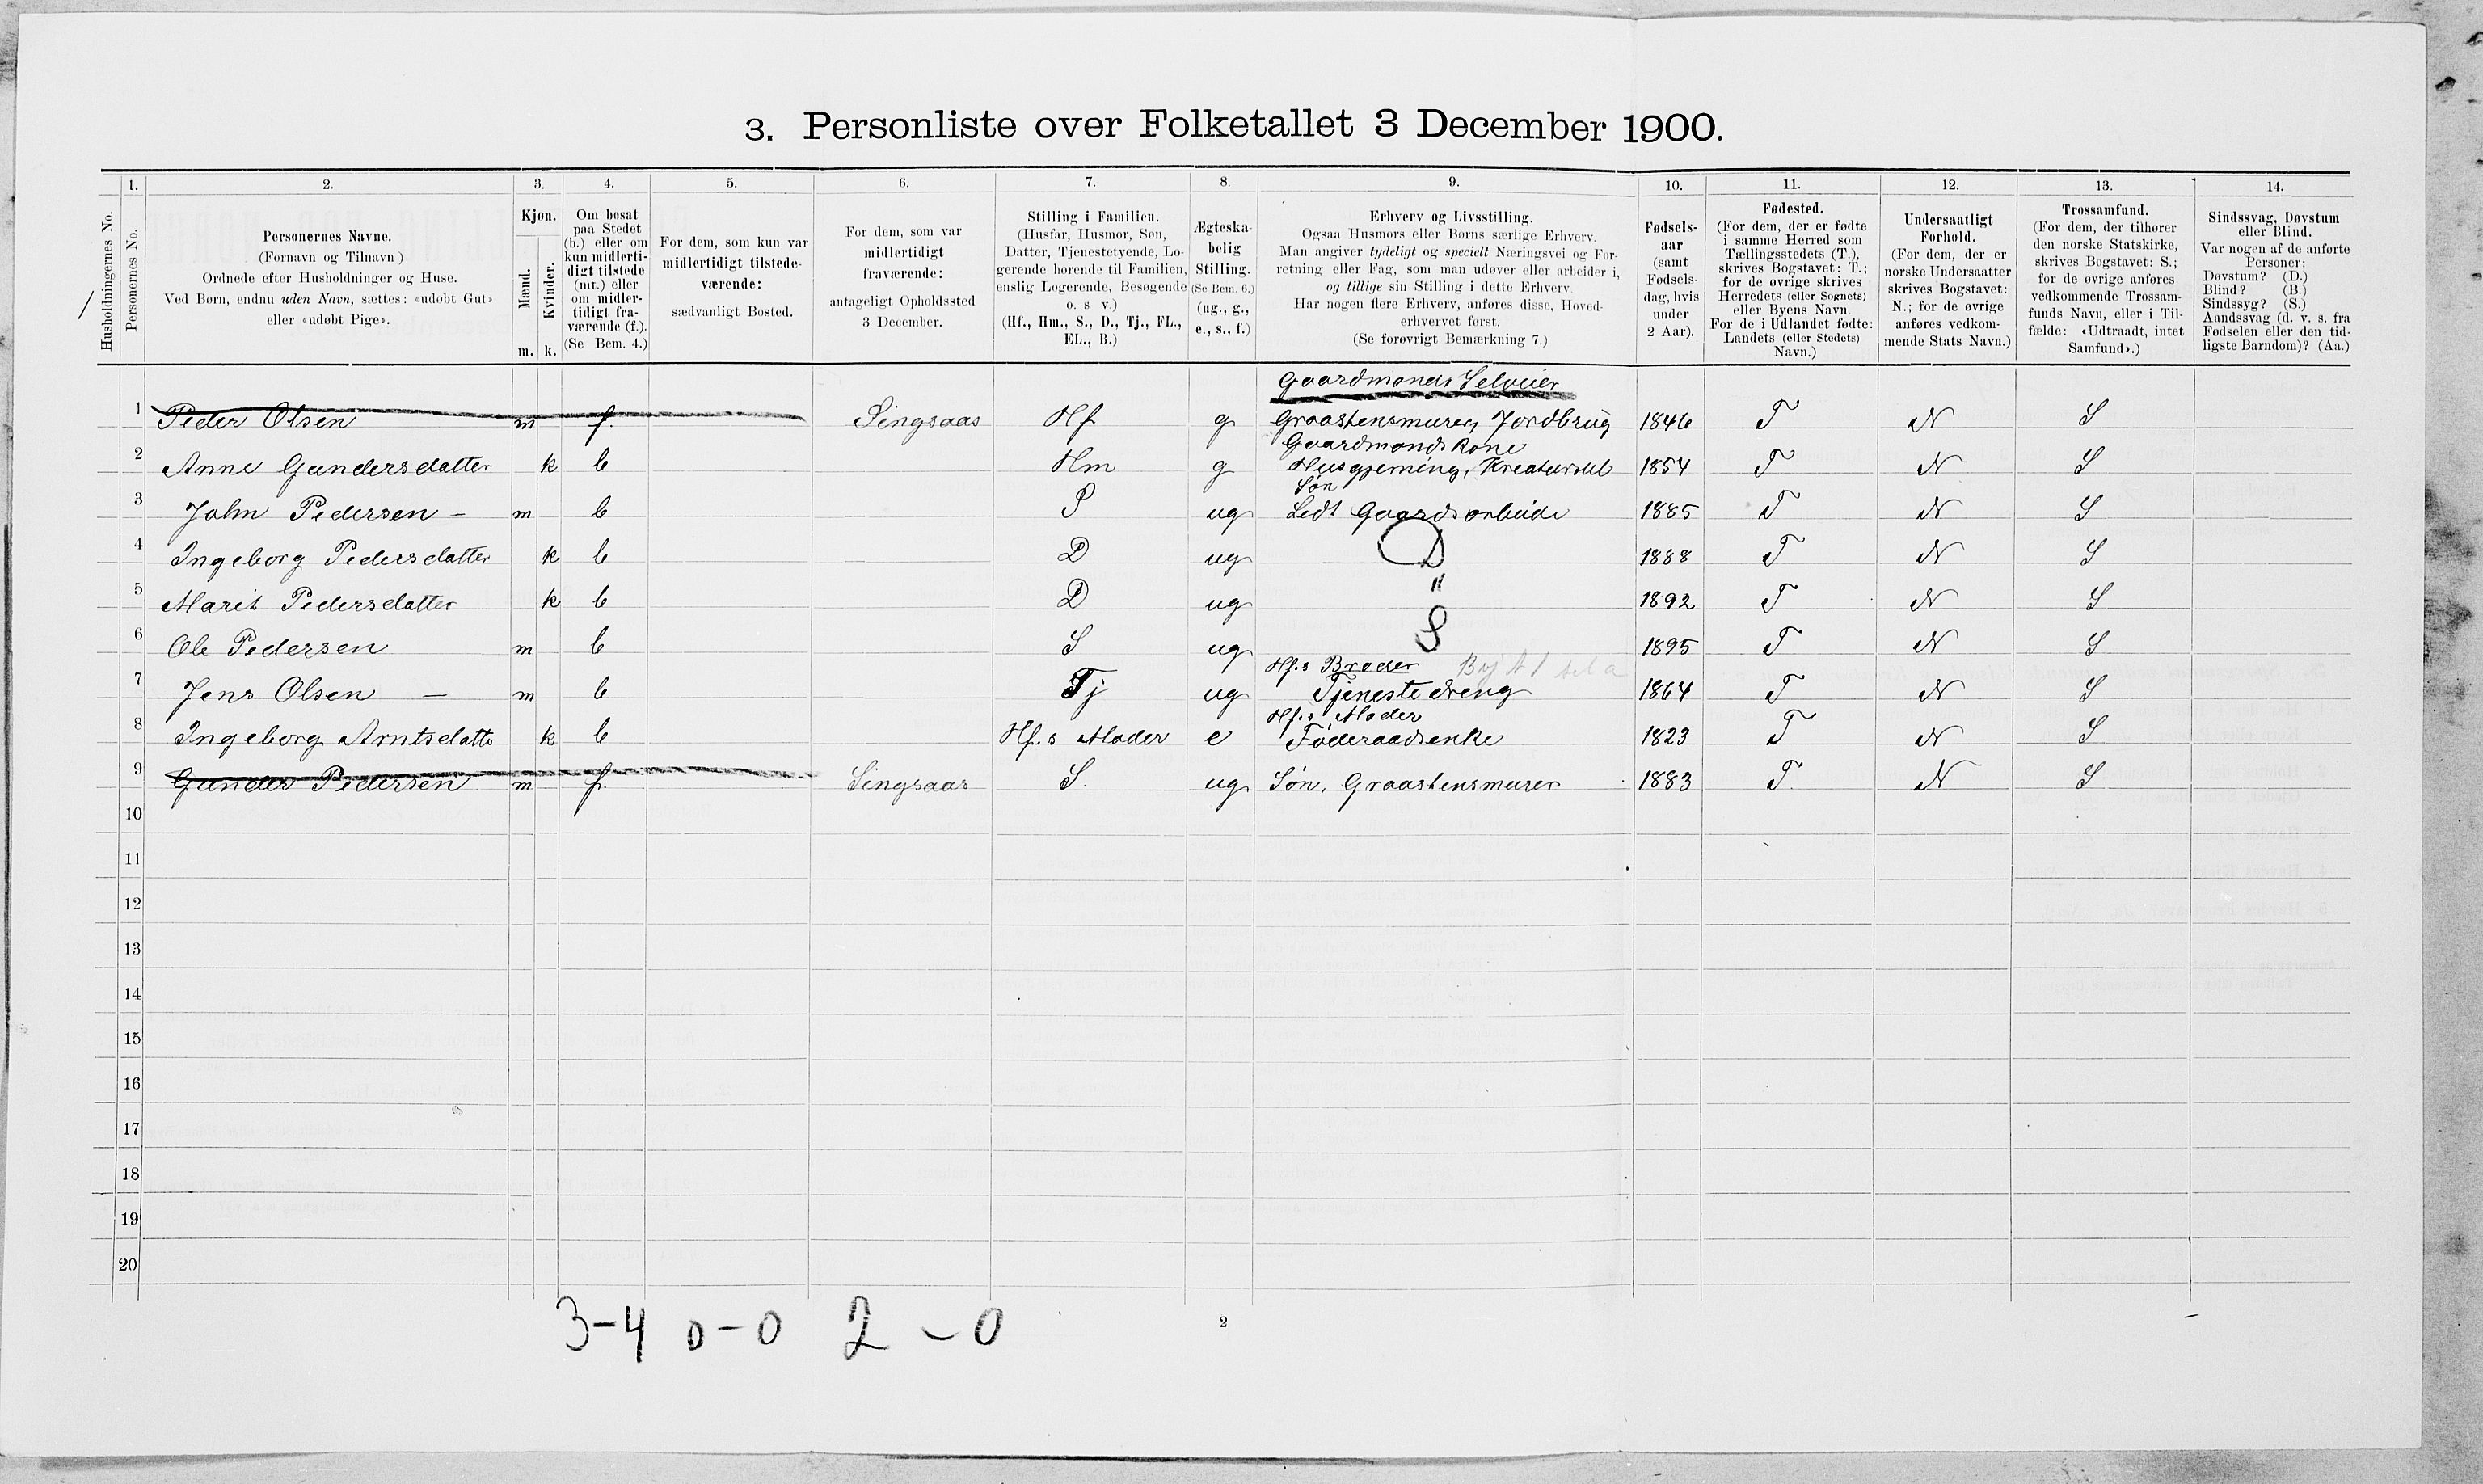 3. Personliste over Folketallet 3 December 1900.
1. 2. 3. 4. 5. 6. 7. 8. 9. 10. 11. 12. 13. 14.
Husholdningernes No.
Personernes No.
Personernes Navne.
(Fornavn og Tilnavn )
Ordnede efter Husholdninger og Huse.
Ved Børn, endnu uden Navn, sættes: «udøbt Gut»
eller «udøbt Pige».
Kjøn.
Mænd.
Kvinder.
m. k.
Om bosat
paa Stedet
(b.) eller om
kun midlerti-
digt tilstede
(mt.) eller
om midler-
tidigt fra-
værende (f.).
(Se Bem. 4.)
For dem, som kun var
midlertidigt tilstede-
værende:
sædvanligt Bosted.
For dem, som var
midlertidigt
fraværende:
antageligt Opholdssted
3 December.
Stilling i Familien.
(Husfar, Husmor, Søn,
Datter, Tjenestetyende, Lo-
gerende hørende til Familien,
enslig Logerende, Besøgende
o. s v.)
(Hf., Hm., S., D., Tj., FL.,
EL., B.)
Ægteska-
belig
Stilling.
(Se Bem. 6.)
(ug., g.,
e., s., f.)
Erhverv og Livsstilling.
Ogsaa Husmors eller Børns særlige Erhverv.
Man angiver tydeligt og specielt Næringsvei og For-
retning eller Fag, som man udøver eller arbeider i,
og tillige sin Stilling i dette Erhverv.
Har nogen flere Erhverv, anføres disse, Hoved-
erhvervet først.
(Se forøvrigt Bemærkning 7.)
Fødsels-
aar
(samt
Fødsels-
dag, hvis
under
2 Aar).
Fødested.
(For dem, der er fødte
i samme Herred som
Tællingsstedets (T.),
skrives Bogstavet: T.;
for de øvrige skrives
Herredets (eller Sognets)
eller Byens Navn.
For de i Udlandet fødte:
Landets (eller Stedets)
Navn.)
Undersaatligt
Forhold.
(For dem, der er
norske Undersaatter
skrives Bogstavet:
N.; for de øvrige
anføres vedkom-
mende Stats Navn.)
Trossamfund.
(For dem, der tilhører
den norske Statskirke,
skrives Bogstavet: S.;
for de øvrige anføres
vedkommende Trossam-
funds Navn, eller i Til-
fælde: «Udtraadt, intet
Samfund».)
Sindssvag, Døvstum
eller Blind.
Var nogen af de anførte
Personer:
Døvstum? (D.)
Blind? (B.)
Sindssyg? (S.)
Aandssvag (d. v. s. fra
Fødselen eller den tid-
ligste Barndom)? (Aa.)
Gaardmands Selveier
1 Peder Olsen m f. Singsaas Hf g Graastensmurer, Jordbrug 1846 T N S
Gaardmands Kone
2 Anne Gundersdatter k b Hm g Husgjerning, Kreaturstel 1854 T N S
Søn
3 John Pedersen - m b S ug Ledt Gaardsarbeide 1885 T N S
4 Ingeborg Pedersdatter k b D ug D 1888 T N S
5 Marit Pedersdatter k b D ug " 1892 T N S
6 Ole Pedersen m b S ug S 1895 T N S
Hf.s Broder
7 Jens Olsen — m b Tj ug Tjenestedreng 1864 T N S
Hf.s Moder
8 Ingeborg Arntsdatte k b Hf.s Moder e Føderaadsenke 1823 T N S
9 Gunder Pedersen m f. Singsaas S. ug Søn, Graastensmurer 1883 T. N S
10
11
12
13
14
15
16
17
18
19
20
3-4 0-0 2 - 0
2